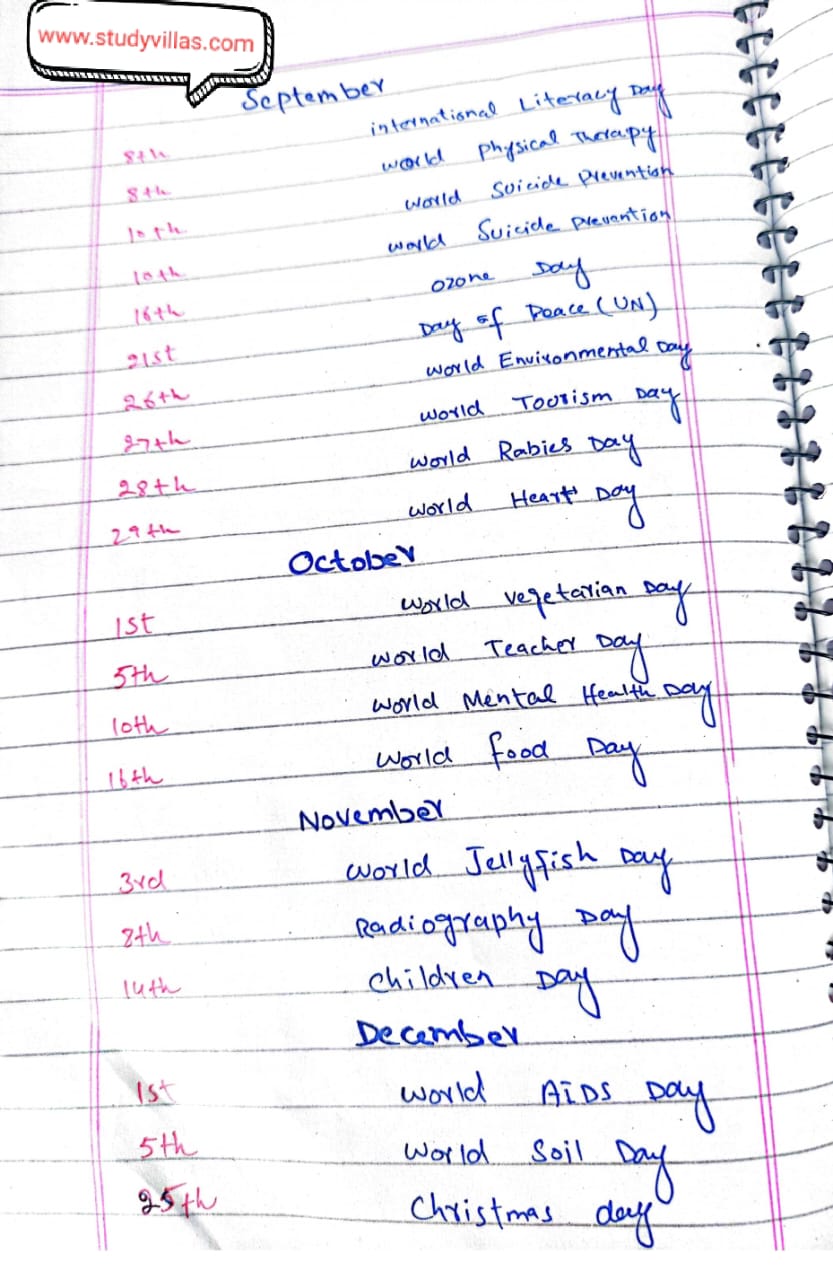 www.studyvillas.com
September
8th international Literacy Day
8th world Physical Therapy
10th world Suicide Prevention
10th world Suicide Prevention
16th Ozone Day
21st Day of Peace (UN)
26th world Environmental Day
27th world Tourism Day
28th world Rabies Day
29th world Heart Day
October
1st world vegetarian Day
5th world Teacher Day
10th world Mental Health Day
16th world food Day
November
3rd world Jellyfish Day
8th Radiography Day
14th Children Day
December
1st world AiDS Day
5th world Soil Day
25th Christmas day